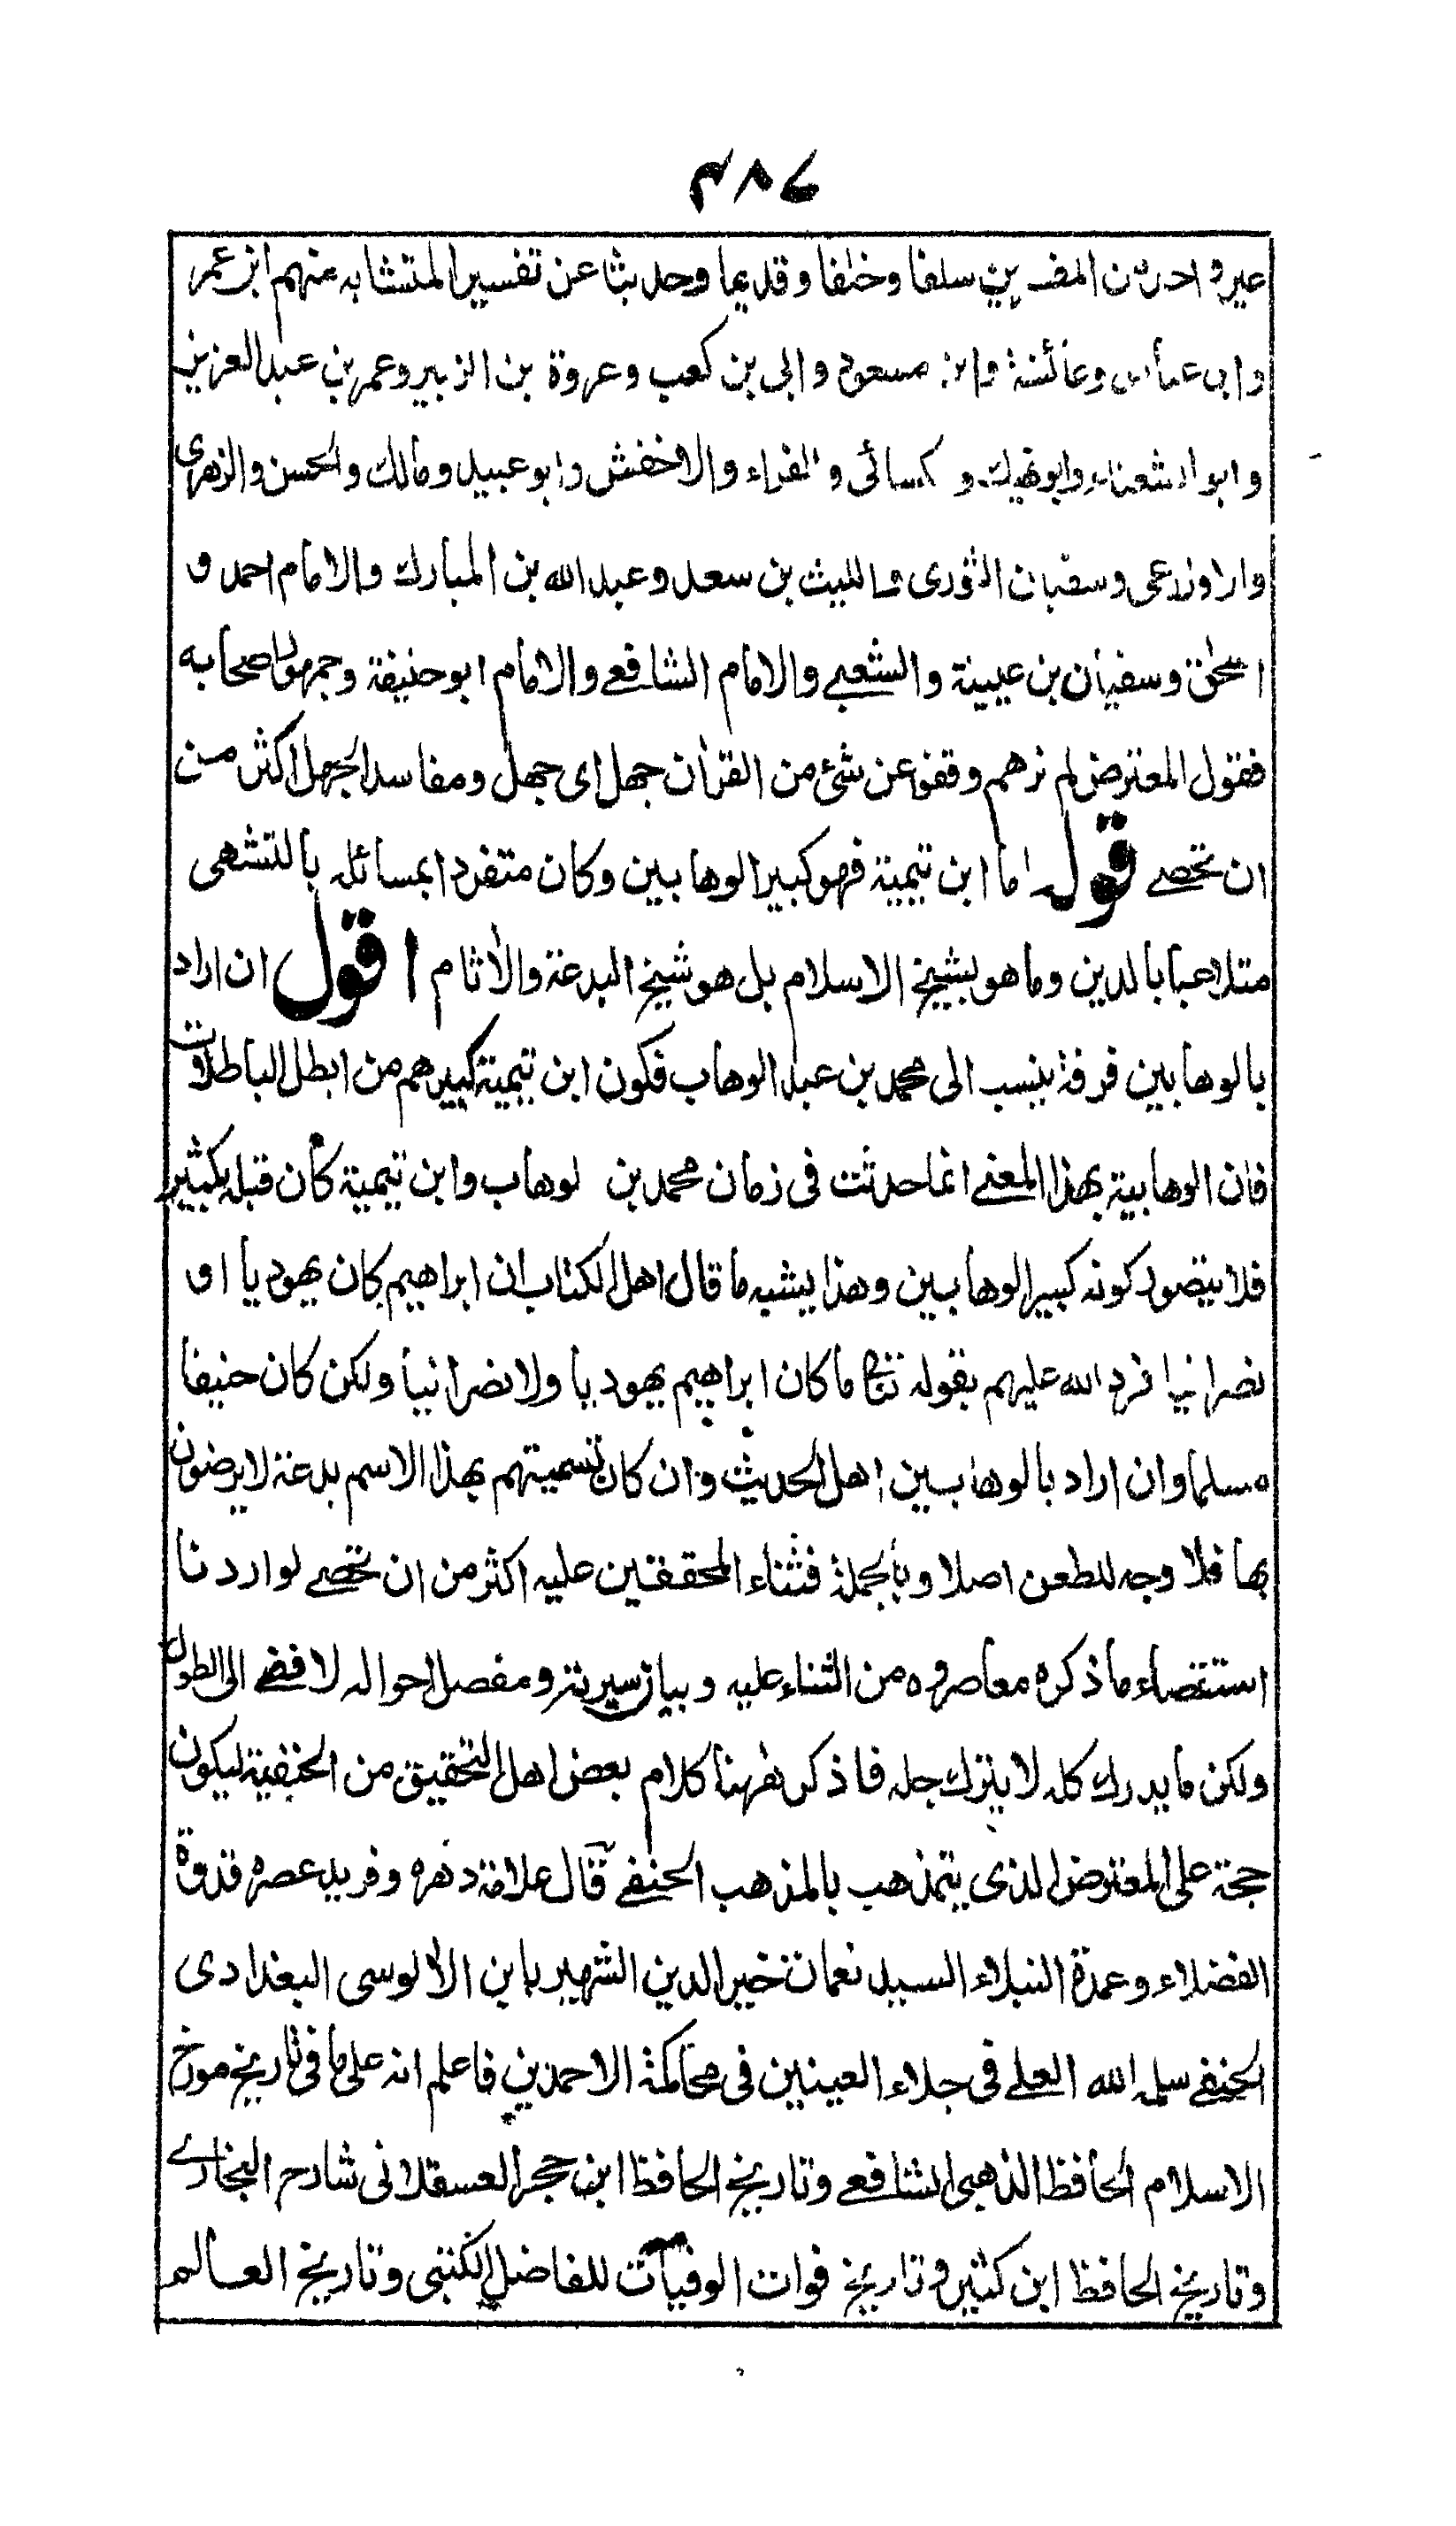 ٣٨٦
غير واحد من المفسرين سلفا وخلفا وقديما وحديثا عن تفسير المتشابه منهم ابن عمر
وابن عباس وعائشة وابن مسعود وابى بن كعب وعروة بن الزبير وعمر بن عبد العزيز
وابو الشعثاء وابو نهيك و كسائى والفراء والاخفش وابو عبيد ومالك والحسن والزهرى
والاوزاعى وسفيان الثورى والليث بن سعد وعبد الله بن المبارك والامام احمد و
اسحٰق وسفيان بن عيينة والشعبے والامام الشافعے والامام ابو حنيفة وجمهور اصحابه
فقول المعترض لم نرهم وقفوا عن شئ من القرٰان جهل اى جهل ومفاسد الجهل اكثر من
ان تحصے قوله اما ابن تيمية فهو كبير الوهابين وكان متفردا بمسائله بالتشهى
متلاعبا بالدين وما هو بشيخ الاسلام بل هو شيخ البدعة والاٰثام اقول ان اراد
بالوهابين فرقة ينسب الى محمد بن عبد الوهاب فكون ابن تيمية كبيرهم من ابطل الباطلات
فان الوهابية بهذا المعنے انما حدثت فى زمان محمد بن لوهاب وابن تيمية كان قبله بكثير
فلا يتصور كونه كبير الوهابين وهذا يشبه ما قال اهل الكتاب ان ابراهيم كان يهوديا او
نصرانيا فرد الله عليهم بقوله تعالى ما كان ابراهيم يهوديا ولا نصرانيا ولكن كان حنيفا
مسلما وان اراد بالوهابين اهل الحديث وان كان تسميتهم بهذا الاسم بدعة لا يرضون
بها فلا وجه للطعن اصلا وبالجملة فثناء المحققين عليه اكثر من ان تحصے لو اردنا
استقصاء ما ذكره معاصروه من الثناء عليه وبيان سيرته ومفصل احواله لافضے الى الطول
ولكن ما يدرك كله لا يترك جله فاذكر ههنا كلام بعض اهل التحقيق من الحنفية ليكون
حجة على المعترض الذى يتمذهب بالمذهب الحنفے قال علامة دهره وفريد عصره قدوة
الفضلاء وعمدة النبلاء السيد نعمان خير الدين الشهير بابن الاٰلوسى البغدادى
الحنفے سلمه الله العلے فى جلاء العينين فى محاكمة الاحمدين فاعلم انه على ما فى تاريخ مورخ
الاسلام الحافظ الذهبى الشافعے وتاريخ الحافظ ابن حجر العسقلانى شارح البخارے
وتاريخ الحافظ ابن كثير وتاريخ فوات الوفيات للفاضل الكتبى وتاريخ العالم